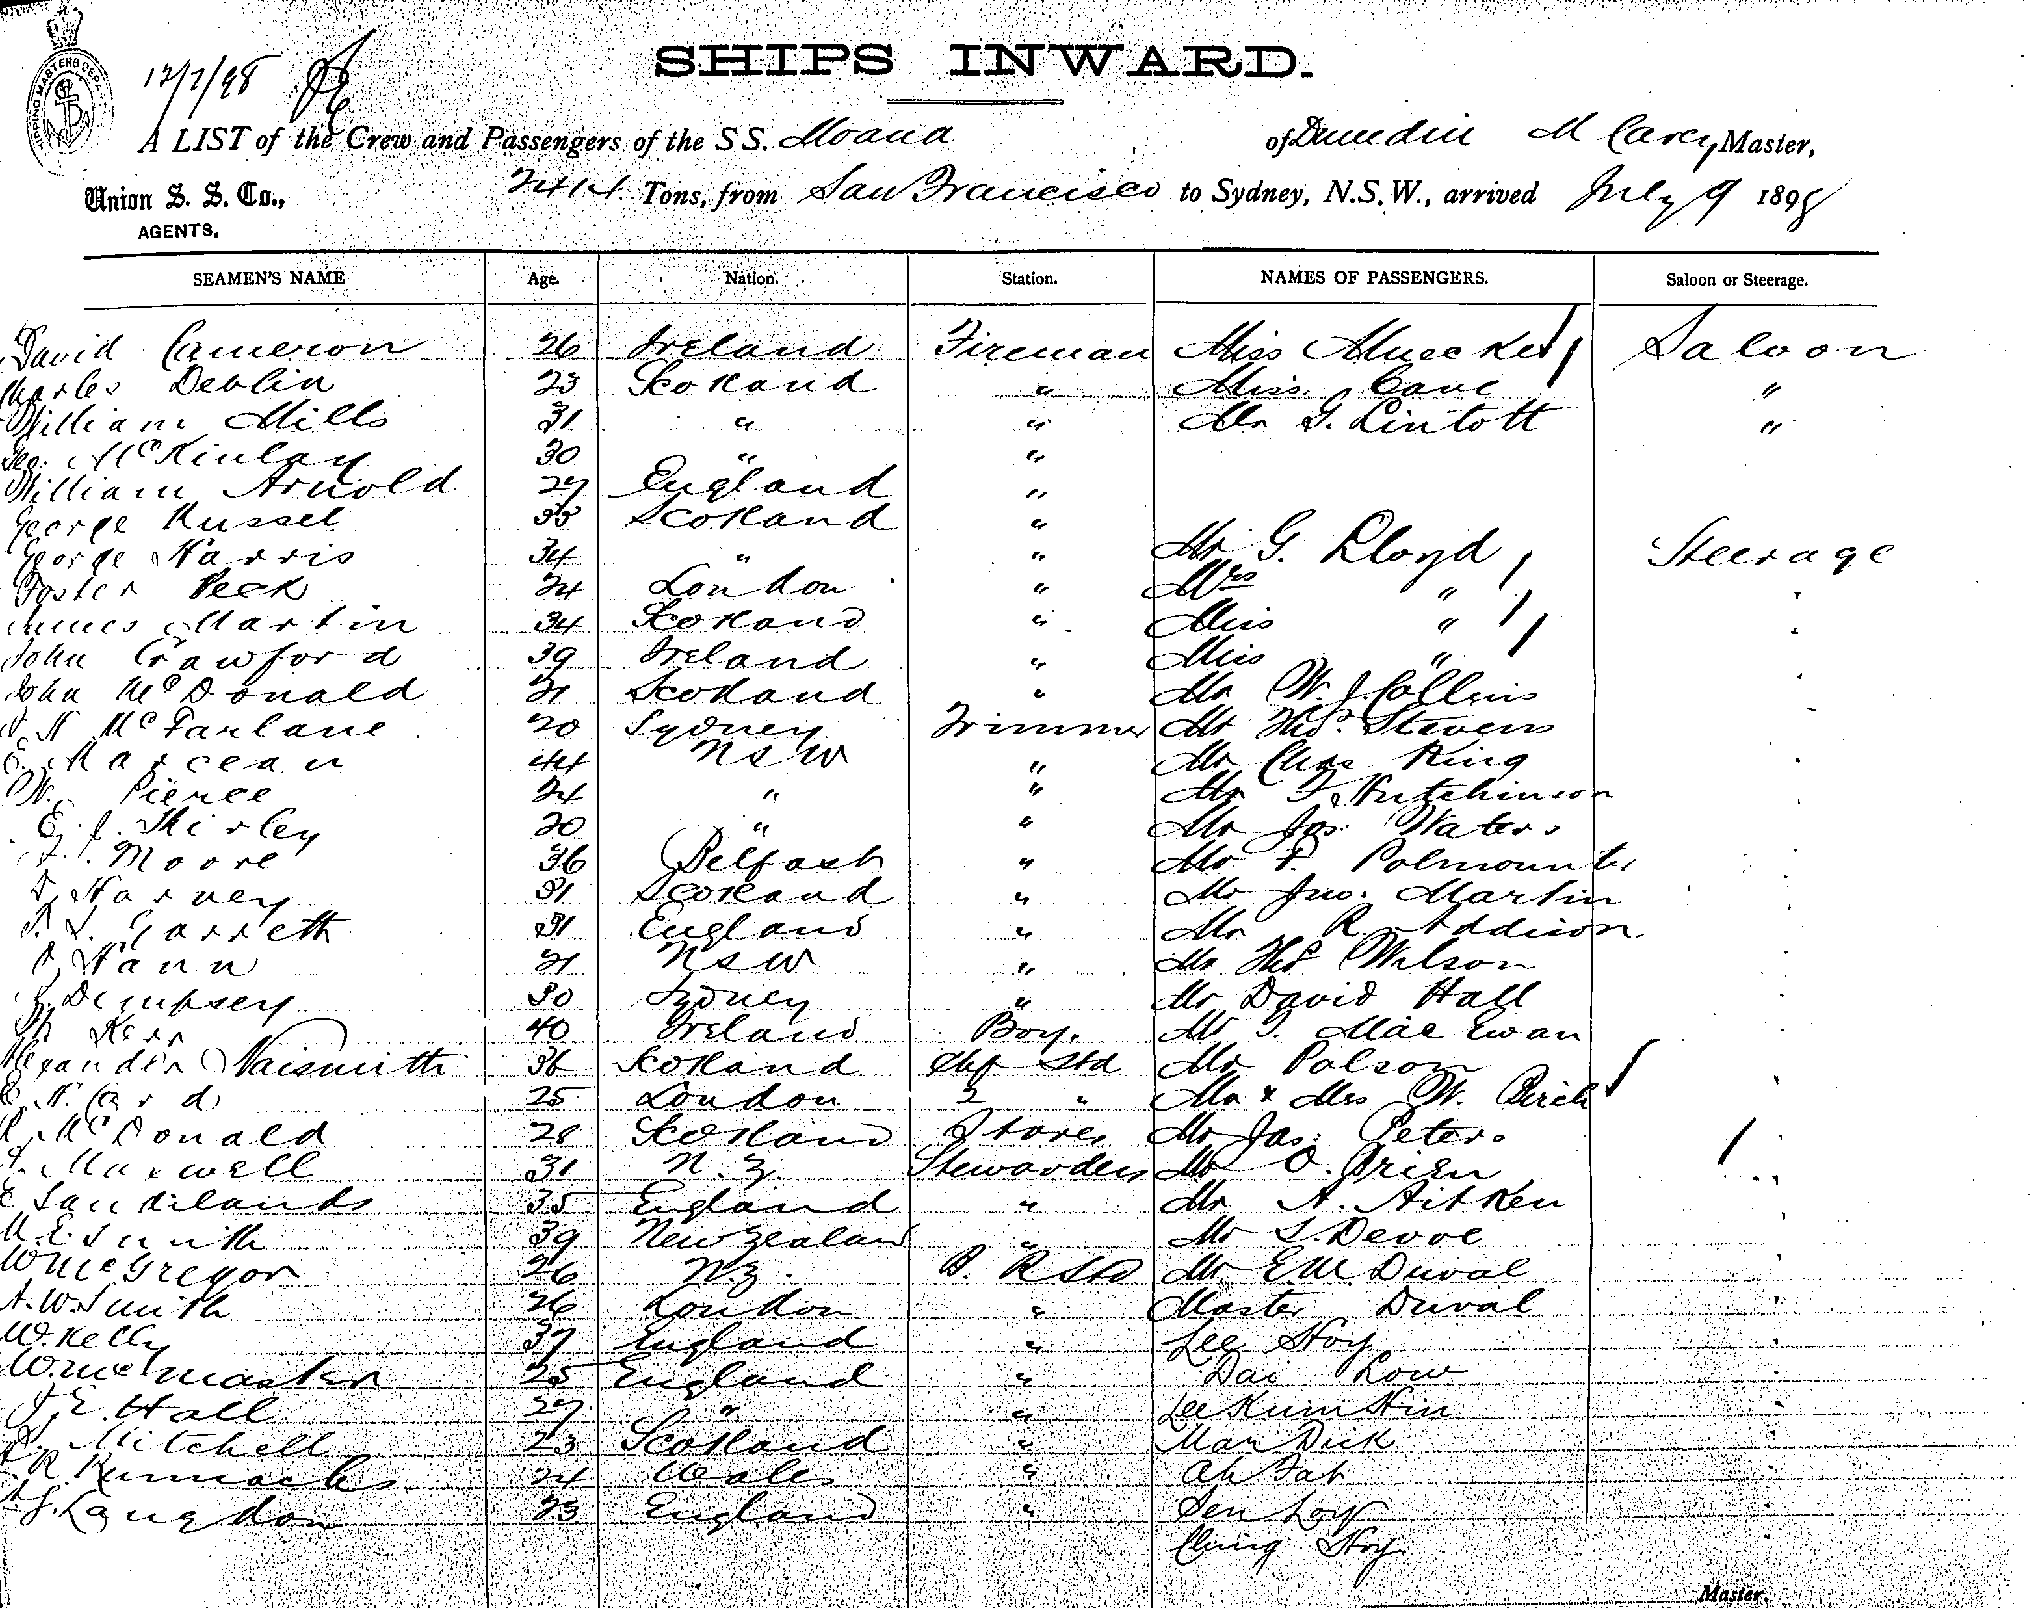 12/7/98
SHIPS INWARD.
A LIST of the Crew and Passengers of the S.S. Moana of Dunedin M Carey Master,
Union S. S. Co., AGENTS.
2414 Tons, from San Francisco to Sydney, N.S.W., arrived July 9 1898
SEAMEN'S NAME Age. Nation. Station. NAMES OF PASSENGERS. Saloon or Steerage.
David Cameron 26 Ireland Fireman Miss Saloon
Charles Devlin 23 Scotland " Miss Cave "
William Mills 31 " " Mr G. Lintott "
Geo. McKinlay 30 " "
William Arnold 27 England "
George Russel 33 Scotland "
George Harris 34 " " Mr G. Lloyd Steerage
Foster Peck 24 London " Mrs "
James Martin 34 Scotland " Miss "
John Crawford 39 Ireland " Miss "
John McDonald 21 Scotland " Mr W. J. Collins
McFarlane 20 Sydney Trimmer Mr Thos. Stevens
E. Marcean 44 N S W " Mr Chas King
W. Pierce 24 " " Mr F. Hutchinson
E. J. Shirley 20 " " Mr Jas. Waters
Moore 36 Belfast " Mr P. Polmounter
Harvey 31 Scotland " Mr Jno. Martin
Garreth 31 England " Mr R. Addison
Hann 21 N S W " Mr Thos Wilson
Dempsey 30 Sydney " Mr David Hall
Kerr 40 Ireland Boy. Mr Mac Ewan
Alexander Naismith 36 Scotland Chf Std Mr Polson
Card 25 London 2 " Mr & Mrs W. Birch
McDonald 28 Scotland Stores Mr Jas. Peters
Maxwell 31 N. Z. Stewardess Mr O. Brien
E Sandilands 35 England " Mr A. Aitken
M. E. Smith 39 New Zealand " Mr S. Devoe
W McGregor 26 N.Z. B. R Std Mr E.W. Duval
A. W. Smith 26 London " Master Duval
W. Kelly 37 England " Lee Hoy
W. McMaster 25 England " Dai Low
J. E. Hall 27 " " Lee Kum Hin
Mitchell 23 Scotland " Mar Dick
24 Wales " Ah Fat
Langdon 23 England " Sen Loy
Ching Hoy
Master.